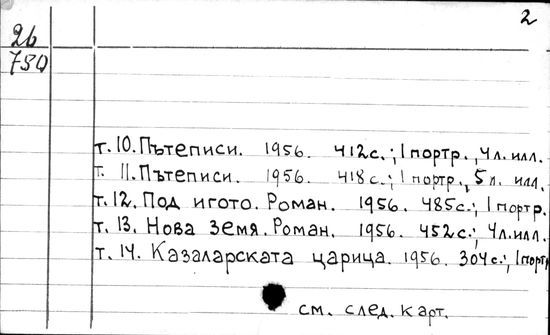 2
26
750
т. 10. Пътеписи. 1956. 412с.; 1 портр., 4 л. илл.
т. 11. Пътеписи. 1956. 418с.; 1 портр., 5 л. илл.
т. 12. Под игото. Роман. 1956. 485с.; 1 портр.
т. 13. Нова земя. Роман. 1956. 452с.; 4 л. илл.
т. 14. Казаларската царица. 1956. 304с.; 1 портр
см. след. карт.